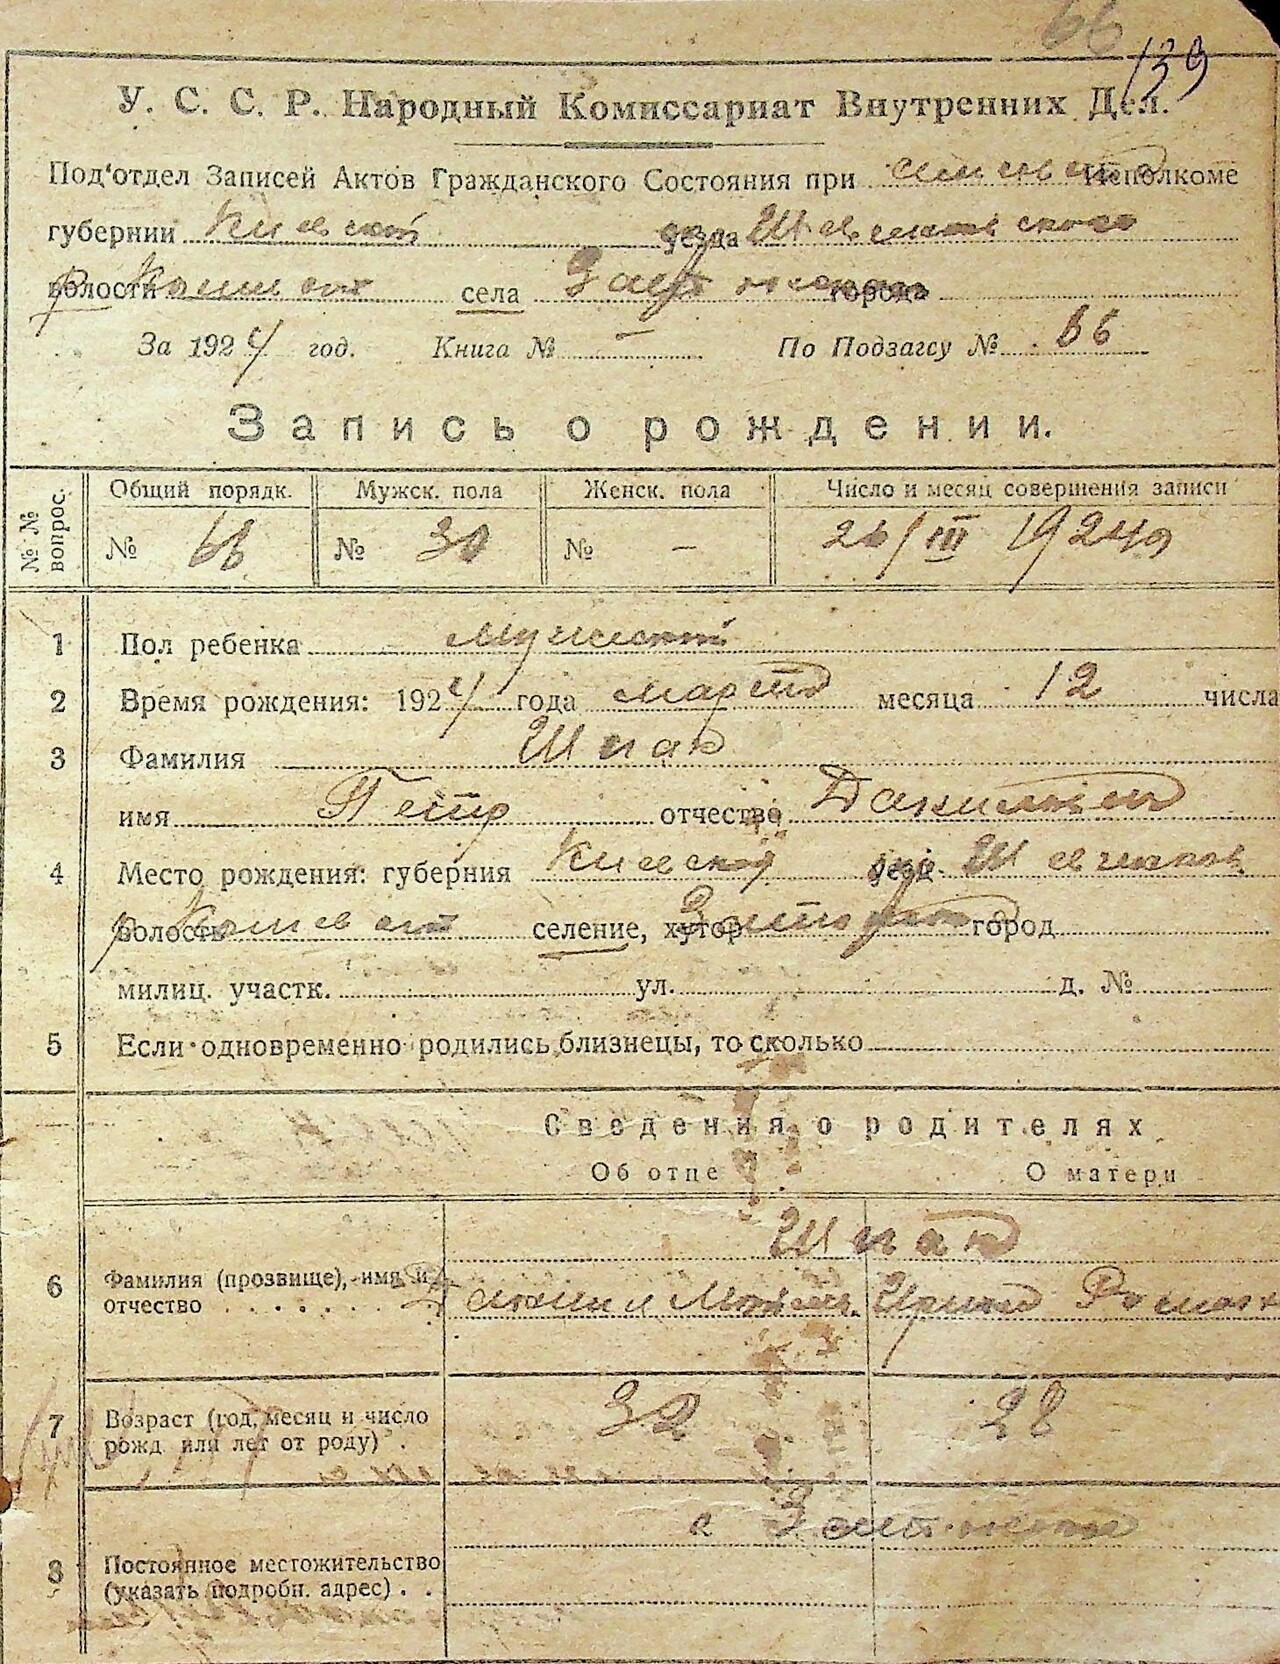 66
139
У. С. С. Р. Народный Комиссариат Внутренних Дел.
Под'отдел Записей Актов Гражданского Состояния при Исполкоме
губернии Киевской уезда Шевченковского
волости села города
За 1924 год. Книга № – По Подзагсу № 66
Запись о рождении.
№ № вопрос. Общий порядк. Мужск. пола Женск. пола Число и месяц совершения записи
№ 66 № 30 № – 26/III 1924
1 Пол ребенка мужской
2 Время рождения: 1924 года марта месяца 12 числа
3 Фамилия Шпак
имя Петр отчество
4 Место рождения: губерния Киевской уезд
волость селение, хутор город
милиц. участк. ул. д. №
5 Если одновременно родились близнецы, то сколько
Сведения о родителях
Об отце О матери
Шпак
6 Фамилия (прозвище), имя и
отчество Ирина Роман
7 Возраст (год, месяц и число
рожд или лет от роду) 32 28
с
8 Постоянное местожительство
(указать подробн. адрес)